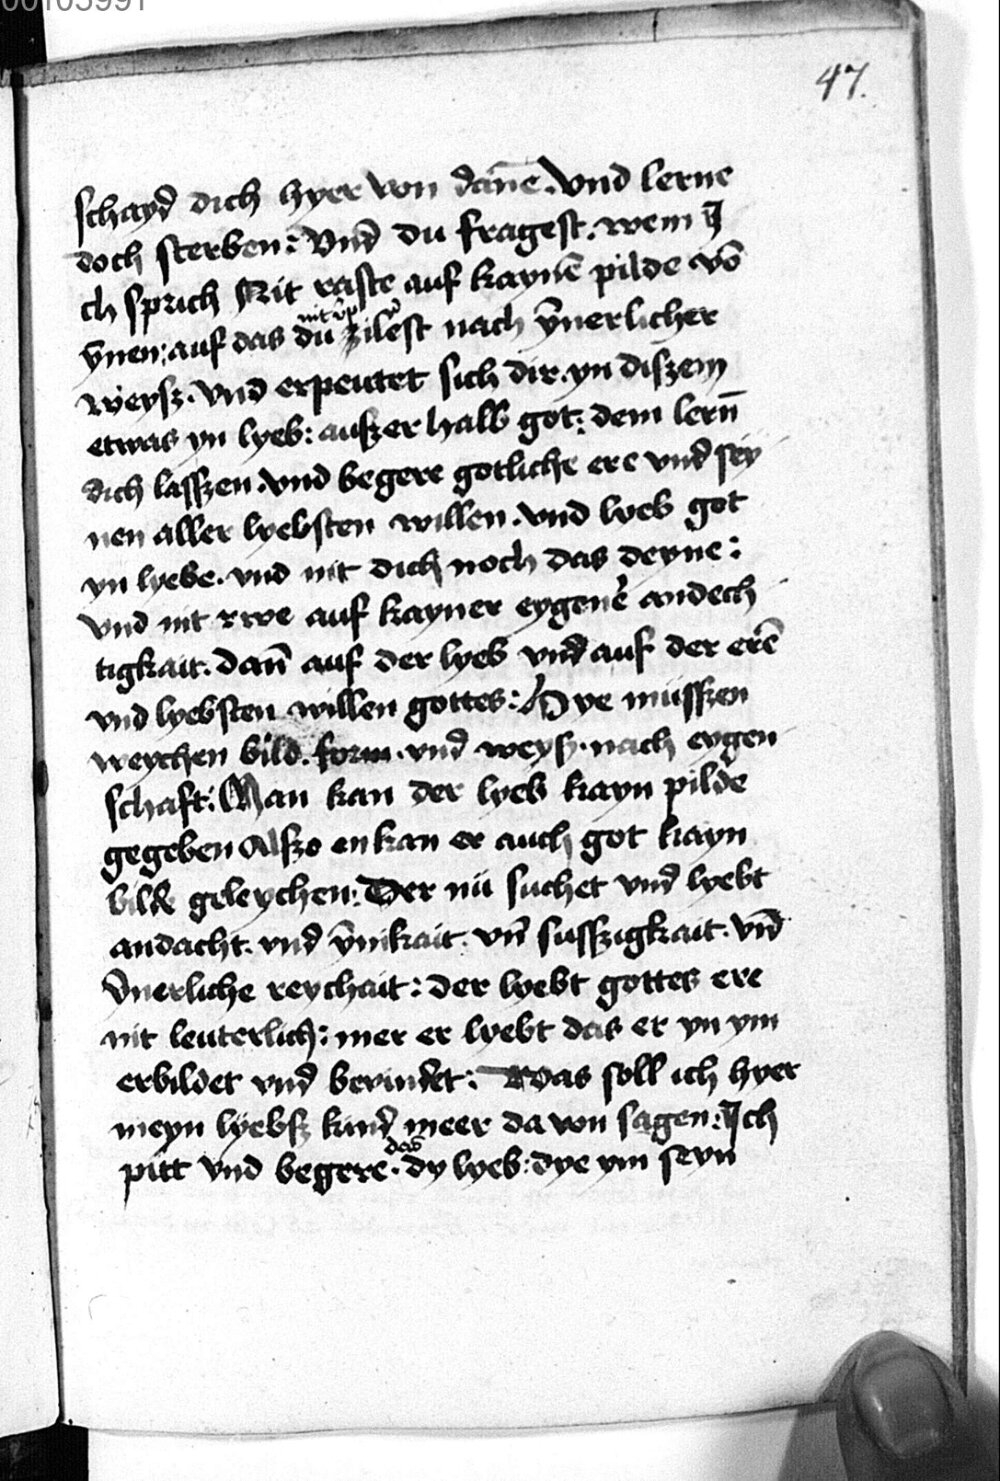 00103991
47.
schayd dich hyer von danē. vnd lerne
doch sterben: Vnd du fragest. wem J
ch sprich Nit raste auf kaynē pilde vō
ẏnen: auf das du zilest nach ẏnerlicher
weysz. vnd erpeutet sich dir. yn diszem
etwas yn lyeb: auszer halb got: dem lern̄
dich lasszen. vnd begere gotliche ere vnd sey
nen aller lyebsten willen. vnd lyeb got
yn lyebe. vnd nit dich noch das deyne:
vnd nit rwe auf kayner eygenē andech
tigkait. dan̄ auf der lyeb vnd auf der erē
vnd lyebsten willen gottes: Hye müsszen
weychen bild. form. vnd weysz. nach eygen
schaft: Man kan der lyeb kayn pilde
gegeben Alszo enkan er auch got kayn
bilde geleychen: Der nü suchet vnd lyebt
andacht. vnd ẏnikait. vn̄ susszigkait. vnd
ẏnerliche reychait: der lyebt gottes ere
nit leuterlich: mer er lyebt das er yn ym
erbildet vnd bevindet: Was soll ich hyer
meyn lyebsz kind meer da von sagen: Jch
das
pitt vnd begere. dy lyeb: dye ym seyn